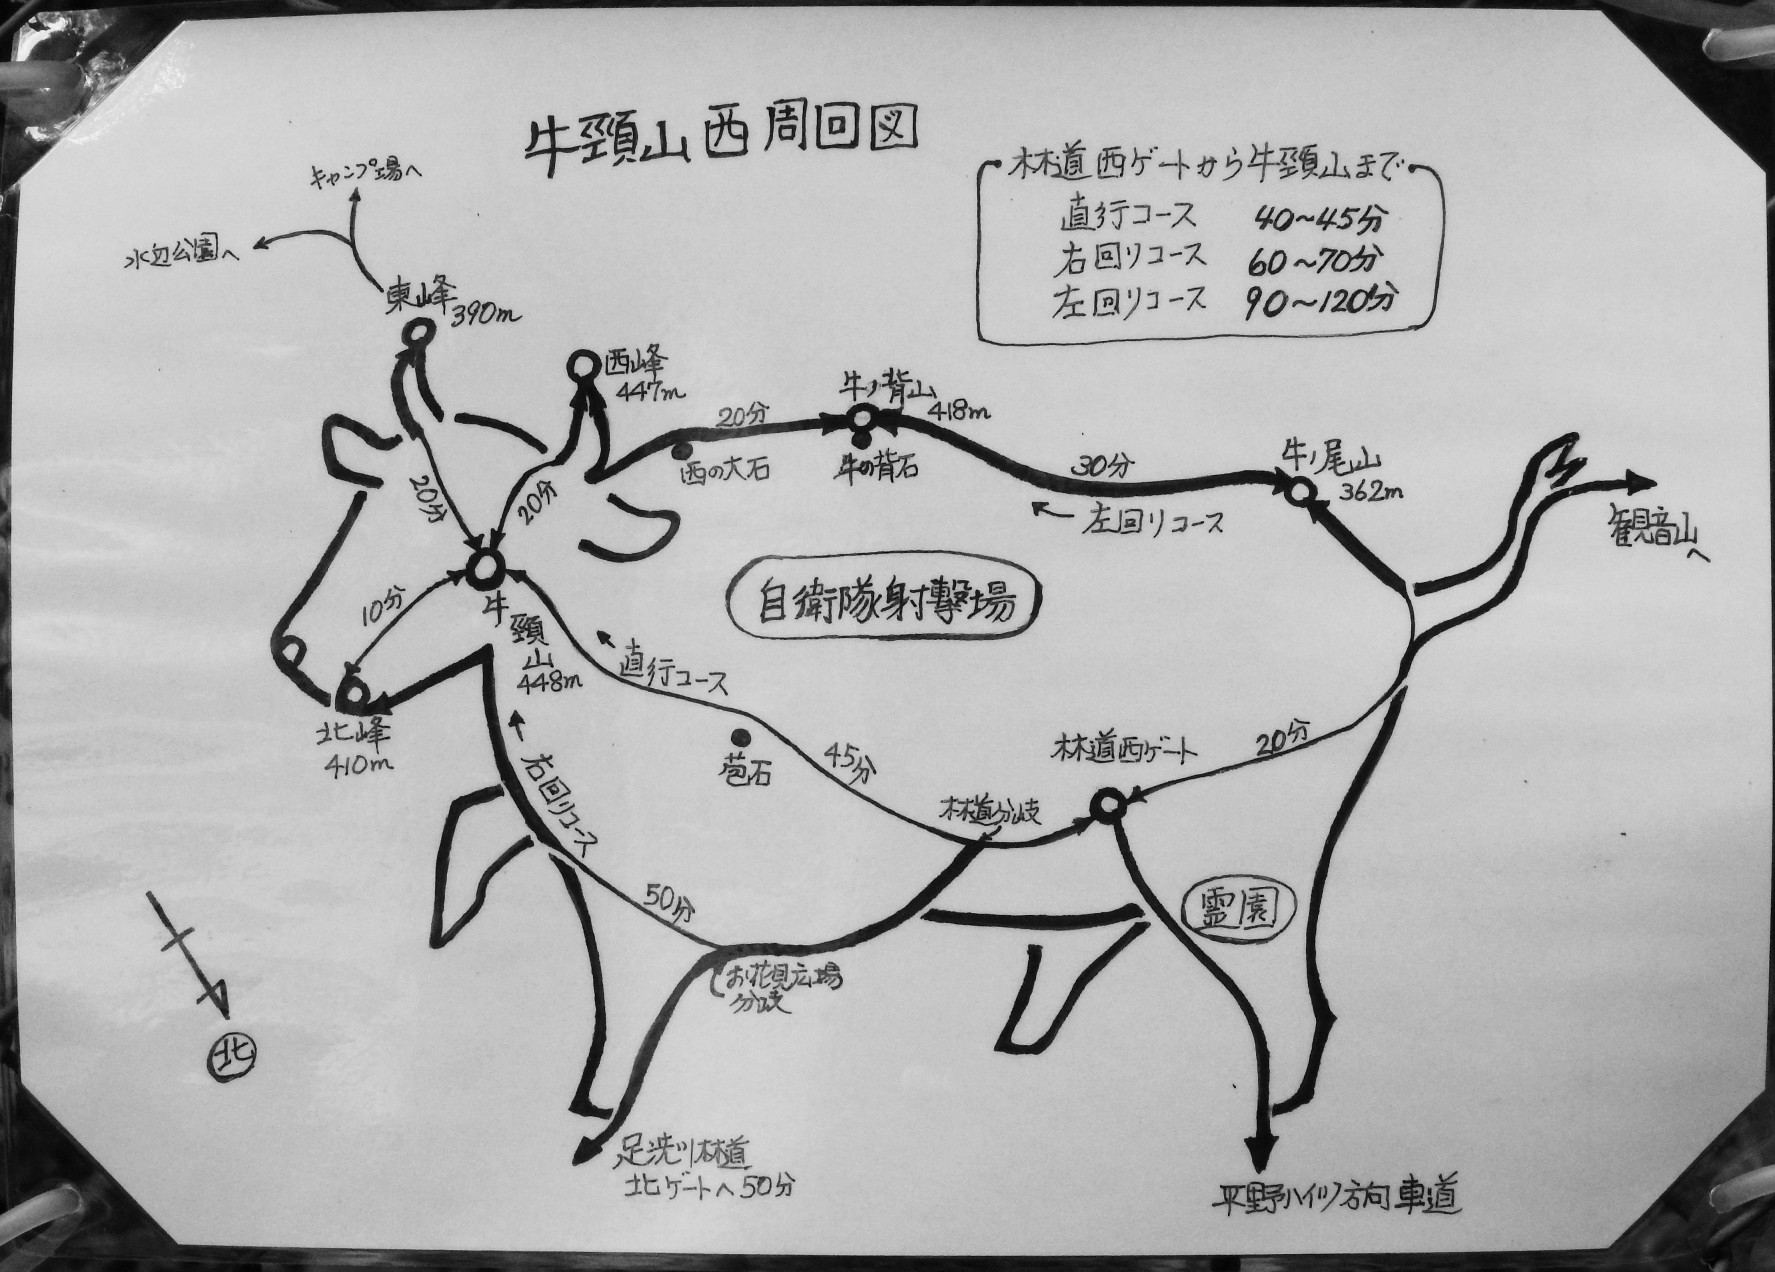 牛頸山西周回図
林道西ゲートから牛頸山まで
直行コース 40~45分
右回りコース 60~70分
左回りコース 90~120分
キャンプ場へ
水辺公園へ
東峰
390m
西峰
447m
20分
牛ノ背山
418m
西の大石
牛の背石
30分
牛ノ尾山
362m
左回りコース
観音山へ
20分
20分
自衛隊射撃場
10分
牛頸山
448m
直行コース
北峰
410m
右回りコース
苞石
45分
林道西ゲート
20分
林道分岐
50分
霊園
お花見広場
分岐
北
足洗川林道
北ゲートへ50分
平野ハイツ方向車道